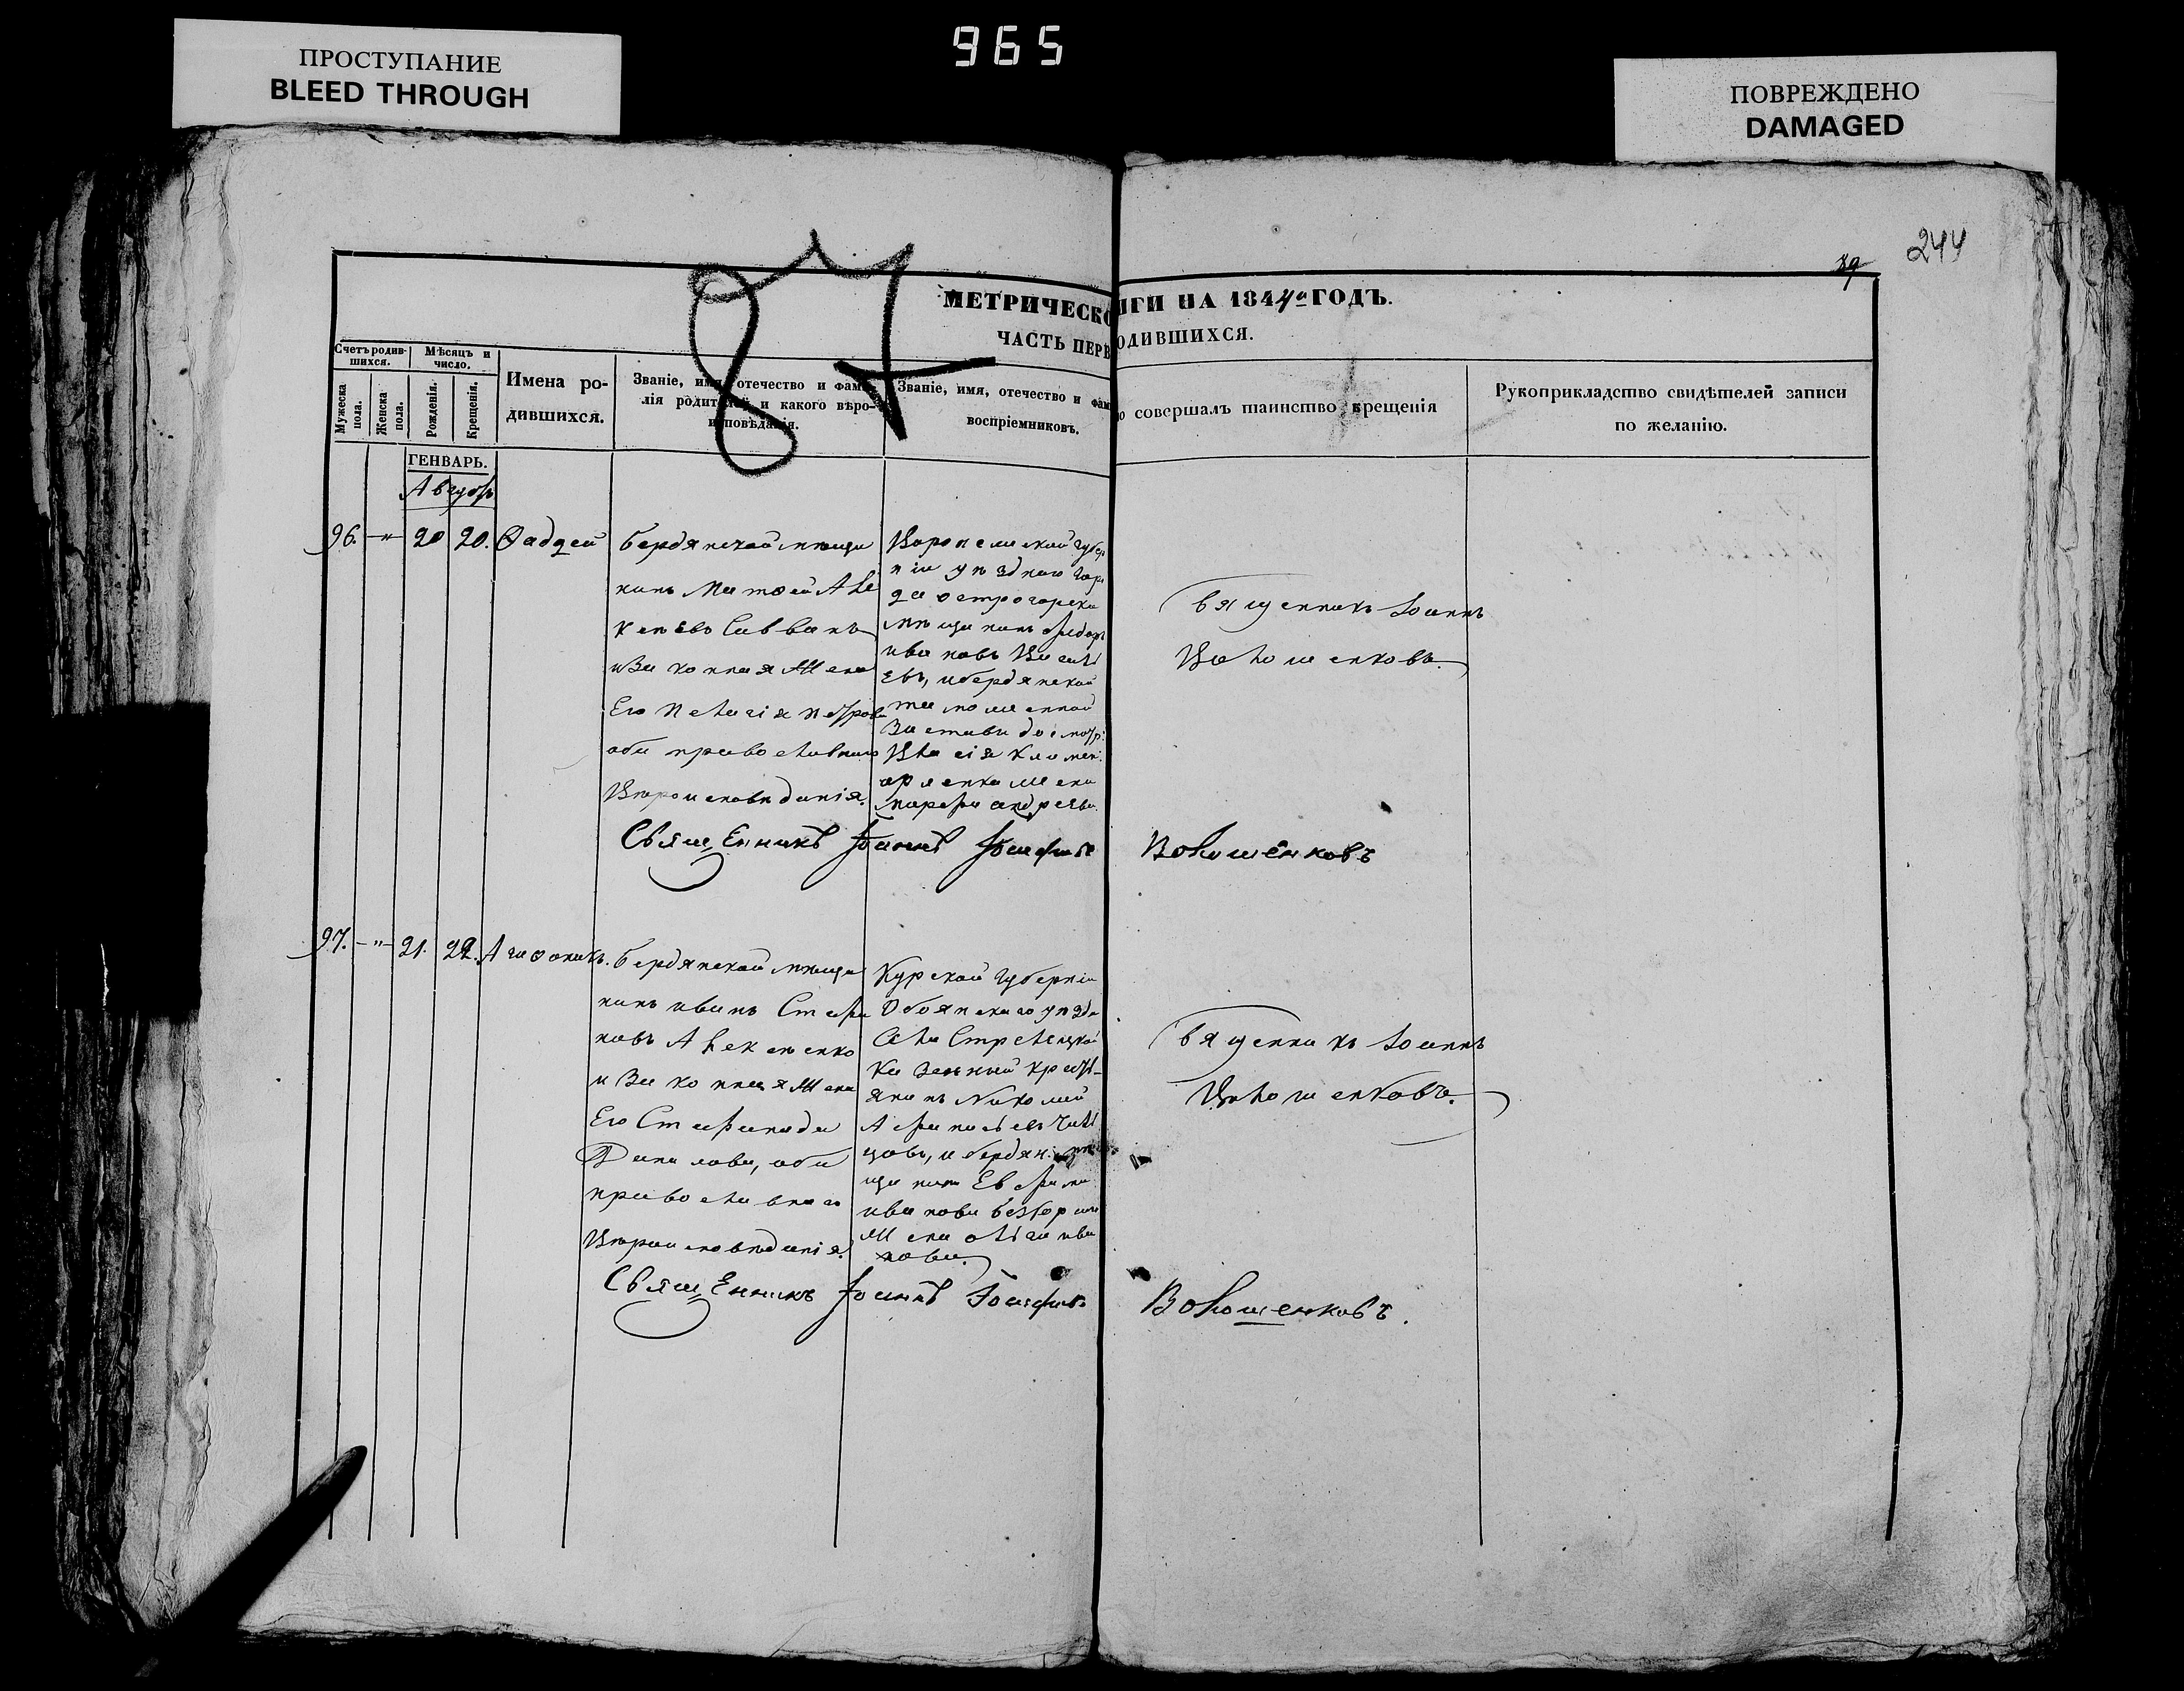 965
ПРОСТУПАНИЕ
BLEED THROUGH
ПОВРЕЖДЕНО
DAMAGED
244
89
87
МЕТРИЧЕСКО
ИГИ НА 1844го ГОДЪ.
ЧАСТЬ ПЕРВ
ОДИВШИХСЯ.
Счетъ родив-
шихся.
Мѣсяцъ и
число.
Мужеска
пола.
Женска
пола.
Рожденія.
Крещенія.
Имена ро-
дившихся.
Званіе, имя, отечество и фами-
лія родителей, и какого вѣро-
исповѣданія.
Званіе, имя, отечество и фам
воспріемниковъ.
о совершалъ таинство крещенія
Рукоприкладство свидѣтелей записи
по желанію.
ГЕНВАРЬ.
Августъ
96. -"- 20 20. Фаддей
бердянскай мѣща
нинъ Матфей Але
ксѣевъ Савванъ
и Законная Жена
Его Пелагія Петрова
оба православнаго
Вѣроисповѣданія.
Воронежской Губер
ніи уѣзднаго горо
да Острогорска
мѣщанинъ Федоръ
ивановъ
евъ, и бердянской
таможенной
Заставы досмотр:
Жена
Марфа андреева.
Священникъ Іоаннъ
Волошенковъ.
Священникъ Іоаннъ Іосифовъ Волошенковъ
97. -"- 21. 22. Агафоникъ.
бердянскай мѣща
нинъ иванъ Стефа
новъ Алексѣенко
и Законная Жена
Его Стефанида
Данилова, оба
православнаго
Вѣроисповѣданія.
Курской Губерніи
Обоянскаго уѣзда
Села Стрелецкой
Казенный кресть-
янинъ Николай
Афанасьевъ
цовъ, и бердян: мѣ
щанина Ефима
иванова
Жена Ольга ива
нова.
Священникъ Іоаннъ
Волошенковъ.
Священникъ Іоаннъ Іосифовъ Волошенковъ.